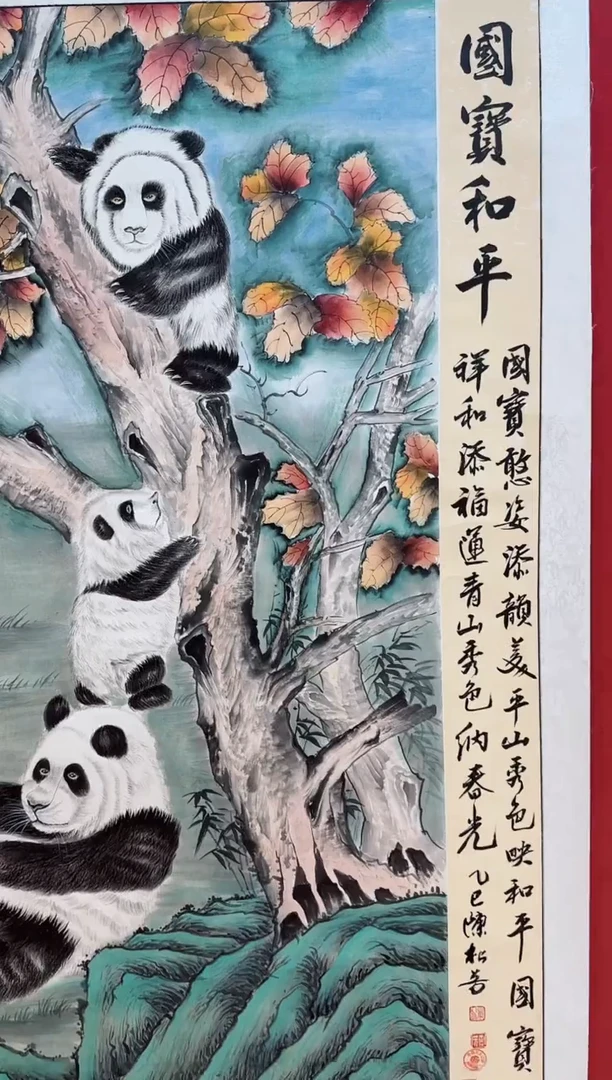 國寶和平
國寶憨姿添韻美平山秀色映和平國寶
祥和添福運青山秀色納春光
乙巳陳松芳